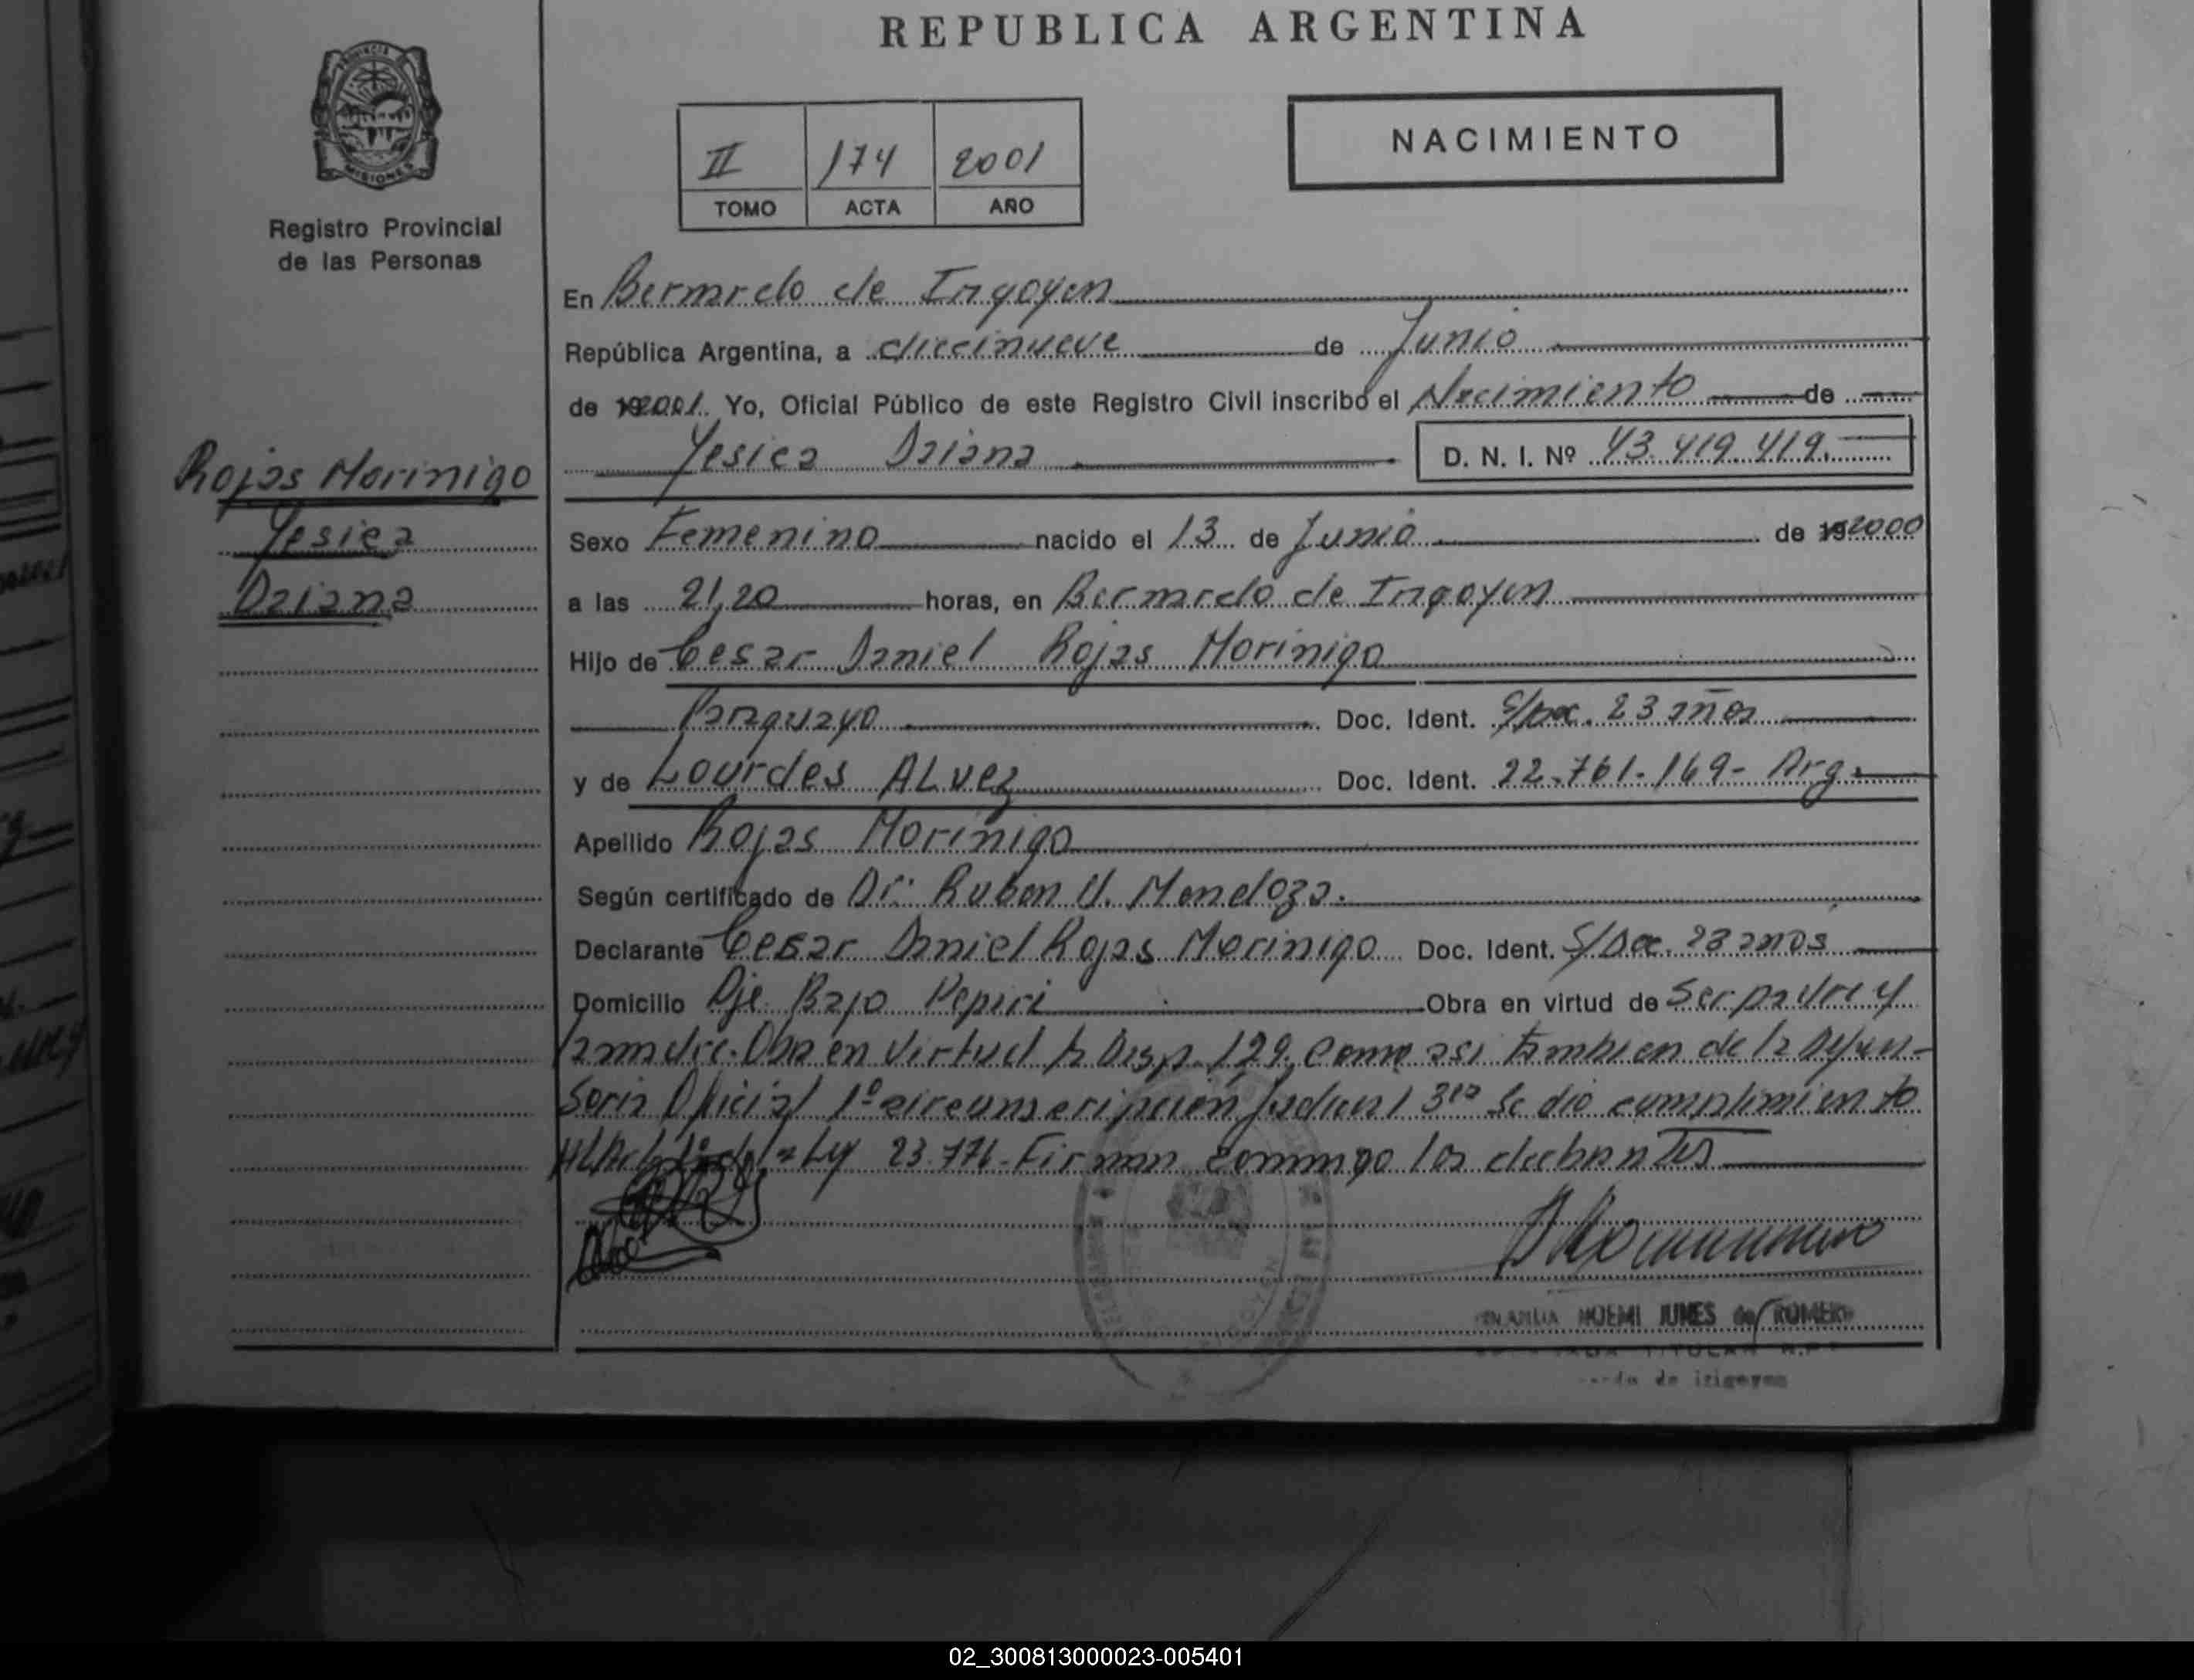 REPUBLICA ARGENTINA
PROVINCIA
MISIONES
Registro Provincial
de las Personas
II 174 2001
TOMO ACTA AÑO
NACIMIENTO
En Bernardo de Irigoyen
República Argentina, a diecinueve de Junio
de 192001. Yo, Oficial Público de este Registro Civil inscribo el Nacimiento de
Yesica Daiana
D. N. I. Nº 43.419.419.
Rojas Morinigo
Yesica
Daiana
Sexo Femenino nacido el 13 de Junio de 192000
a las 21,20 horas, en Bernardo de Irigoyen
Hijo de Cesar Daniel Rojas Morinigo
Paraguayo Doc. Ident. S/Doc. 23 años
y de Lourdes ALvez Doc. Ident. 22.761.169- Arg.
Apellido Rojas Morinigo
Según certificado de Dr: Ruben U. Mendoza.
Declarante Cesar Daniel Rojas Morinigo Doc. Ident. S/Doc. 23 años
Domicilio Pje. Bajo Pepiri Obra en virtud de Ser padre y
la madre. Oba en Virtud la Disp. 129, como asi tambien de la Defen-
soria Oficial 1º circunscripción Judicial 3ra Se dio cumplimiento
Al Art. de la Ley 23.776. Firman conmigo los declarantes
NOEMI JUNES de ROMERO
TITULAR
de irigoyen
02_300813000023-005401